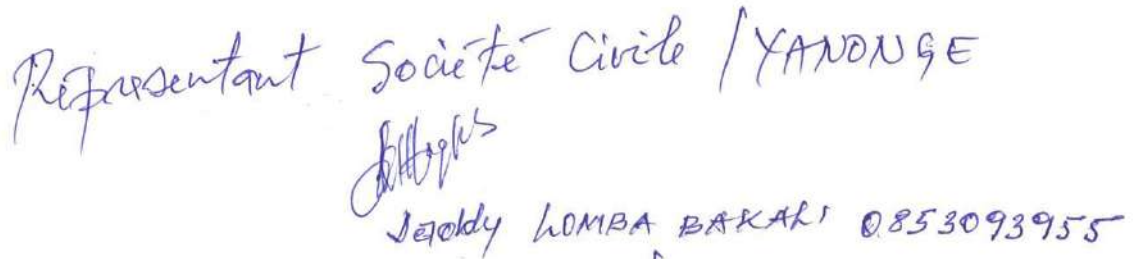 Représentant Société Civile / YANONGE
LOMBA BAKARI 0853093955